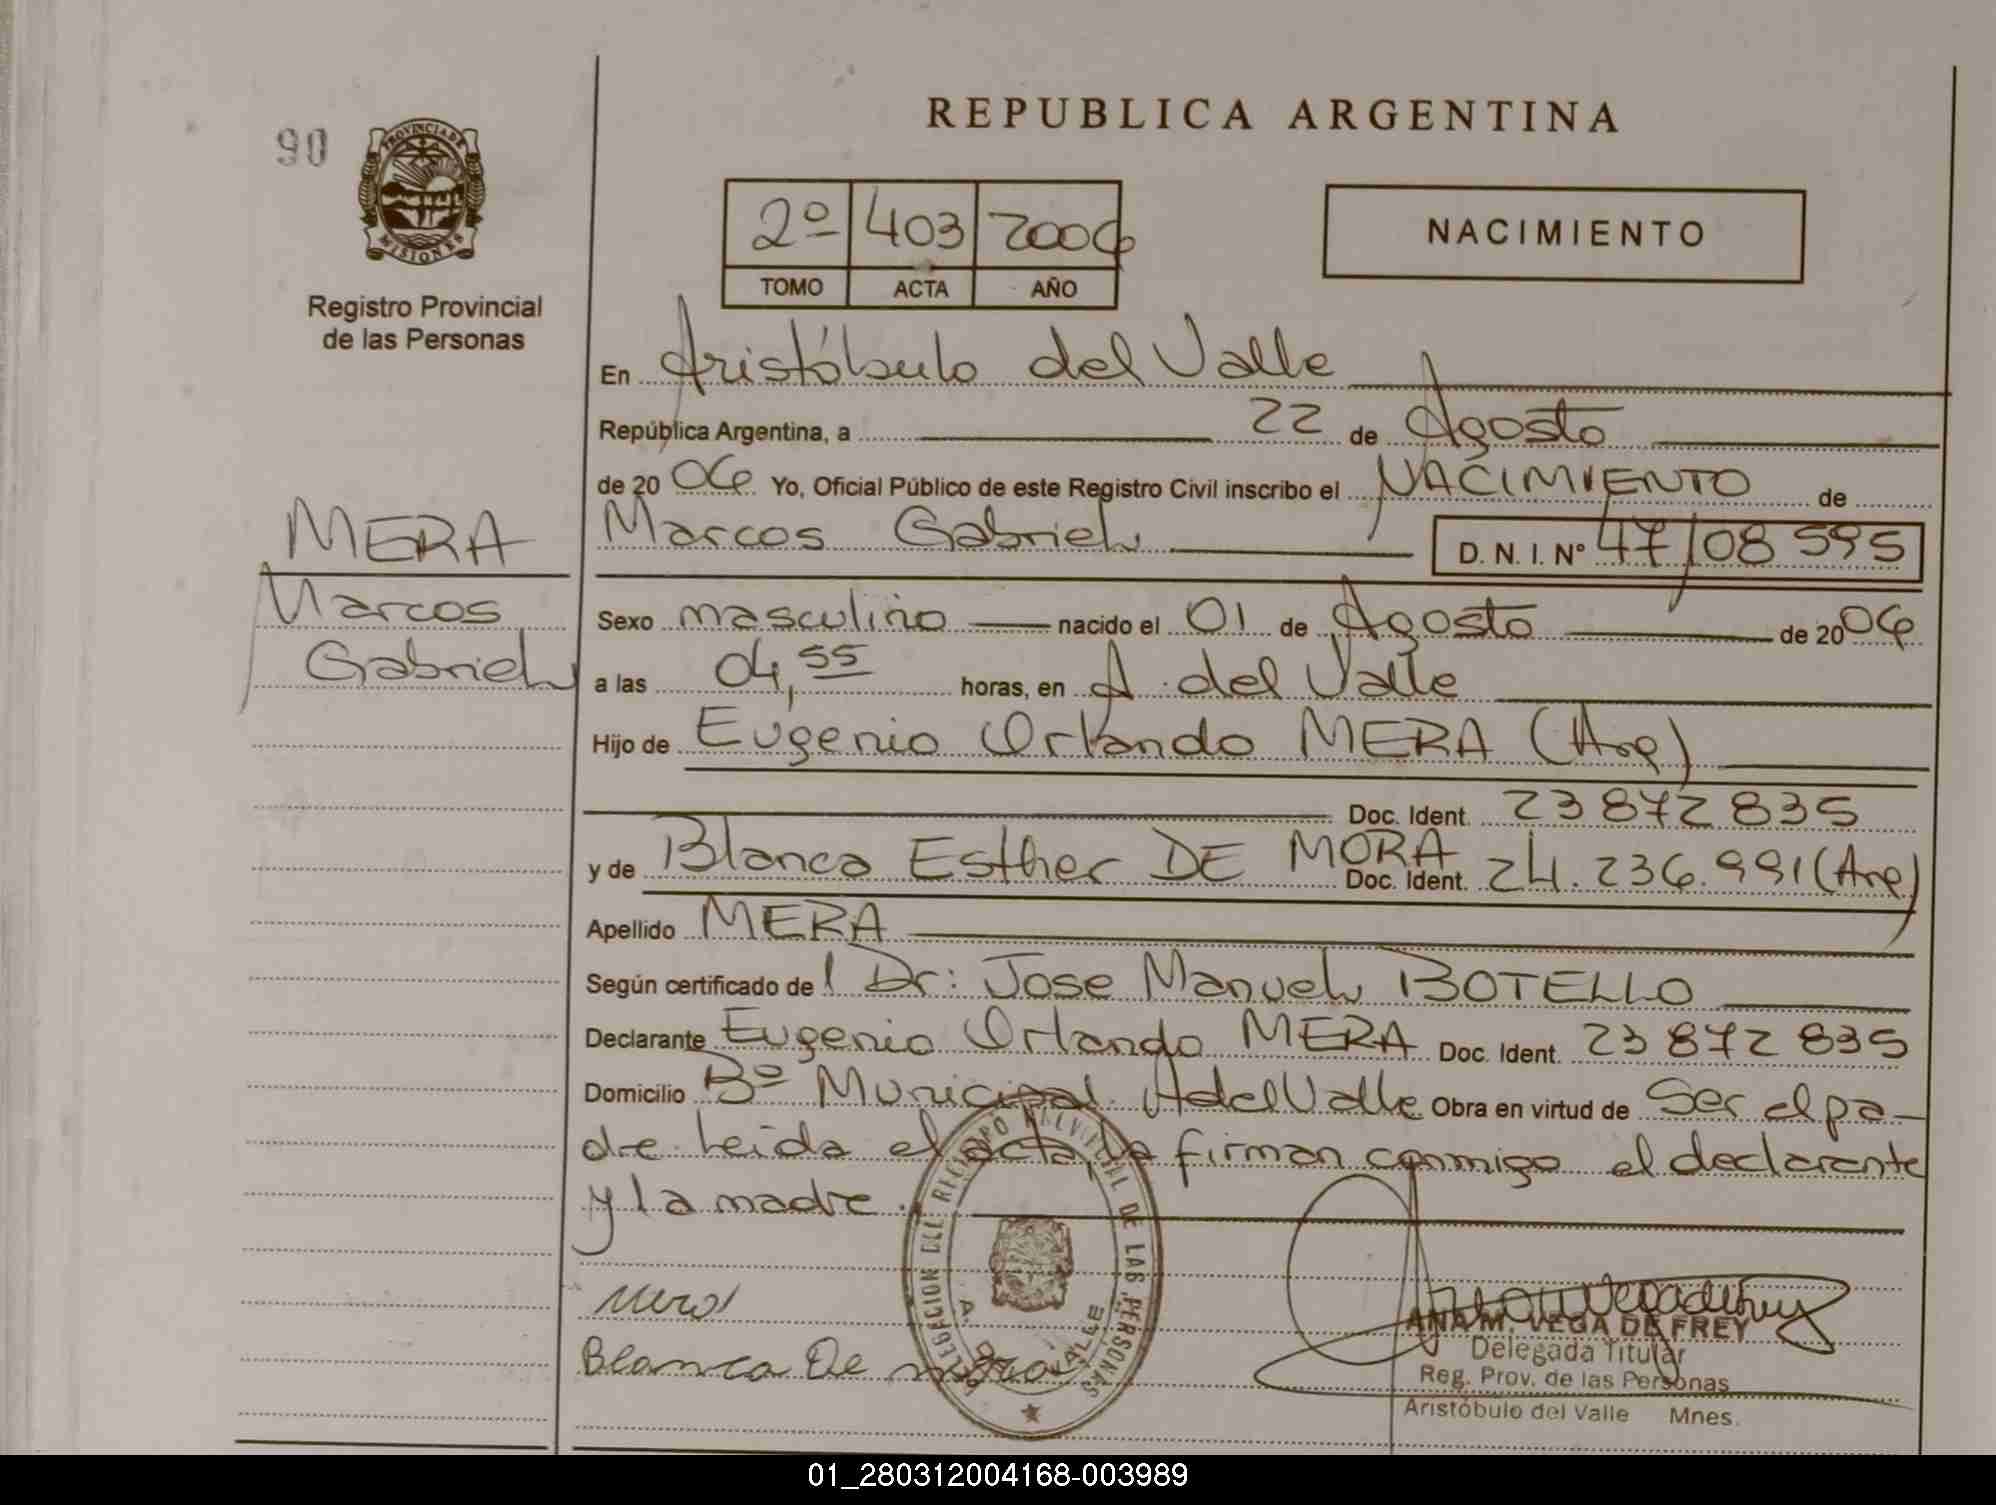 REPUBLICA ARGENTINA
90
PROVINCIA DE MISIONES
Registro Provincial
de las Personas
2º 403 2006
TOMO ACTA AÑO
NACIMIENTO
En Aristóbulo del Valle
República Argentina, a 22 de Agosto
de 2006 Yo, Oficial Público de este Registro Civil inscribo el NACIMIENTO de
Marcos Gabriel D. N. I. Nº 47/08 595
MERA
Marcos
Gabriel
Sexo masculino nacido el 01 de Agosto de 2006
a las 04,55 horas, en A. del Valle
Hijo de Eugenio Orlando MERA (Arg)
Doc. Ident. 23 872 835
y de Blanca Esther DE MORA Doc. Ident. 24.236.991 (Arg)
Apellido MERA
Según certificado del Dr: Jose Manuel BOTELLO
Declarante Eugenio Orlando MERA Doc. Ident. 23 872 835
Domicilio Bº Municipal A del Valle Obra en virtud de Ser el pa-
dre leida el acta, la firman conmigo el declarante
y la madre.
DELEGACION DEL REGISTRO PROVINCIAL DE LAS PERSONAS
A. DEL VALLE
Mera
Blanca De mora
ANA M. VEGA DE FREY
Delegada Titular
Reg. Prov. de las Personas
Aristóbulo del Valle Mnes.
01_280312004168-003989